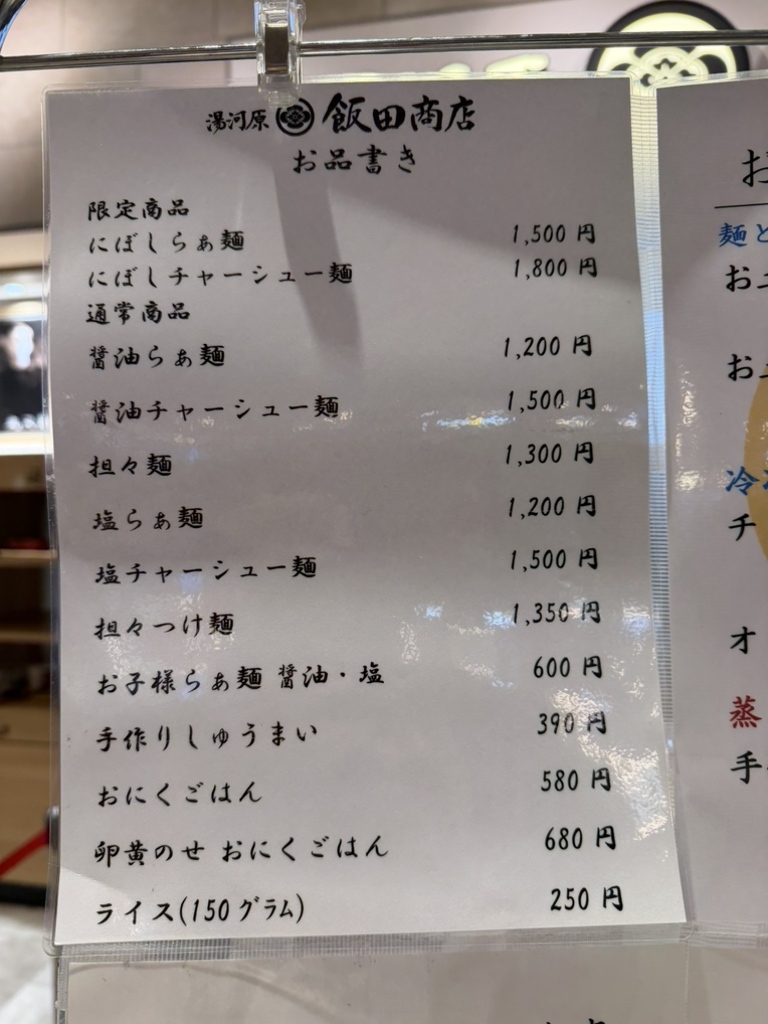 湯河原 飯田商店
お品書き
限定商品
にぼしらぁ麺 1,500 円
にぼしチャーシュー麺 1,800 円
通常商品
醤油らぁ麺 1,200 円
醤油チャーシュー麺 1,500 円
担々麺 1,300 円
塩らぁ麺 1,200 円
塩チャーシュー麺 1,500 円
担々つけ麺 1,350 円
お子様らぁ麺 醤油・塩 600 円
手作りしゅうまい 390 円
おにくごはん 580 円
卵黄のせ おにくごはん 680 円
ライス(150グラム) 250 円
お
麺と
お土
お土
冷
チ
オ
蒸
手